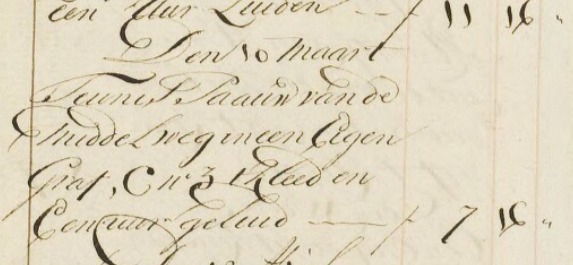 een Uur Luiden — f 11 16 "
Den 10 Maart
Teunis Paauw van de
Middelweg in een Eigen
Graf, C no 3 1 Kleed en
Een uur geluid — f 7 16 "